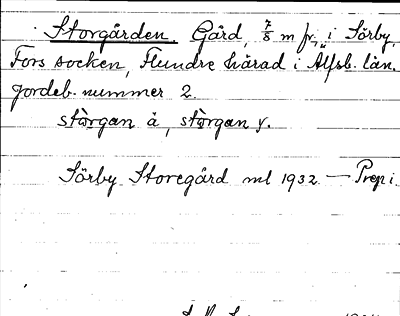 Storgården Gård, 7/8 m fr., i Sörby,
Fors socken, Flundre härad i Älfsb. län.
Jordeb. nummer 2.
stòrgan å, stòrgan y.
Sörby Storegård ml 1932 — Prep i